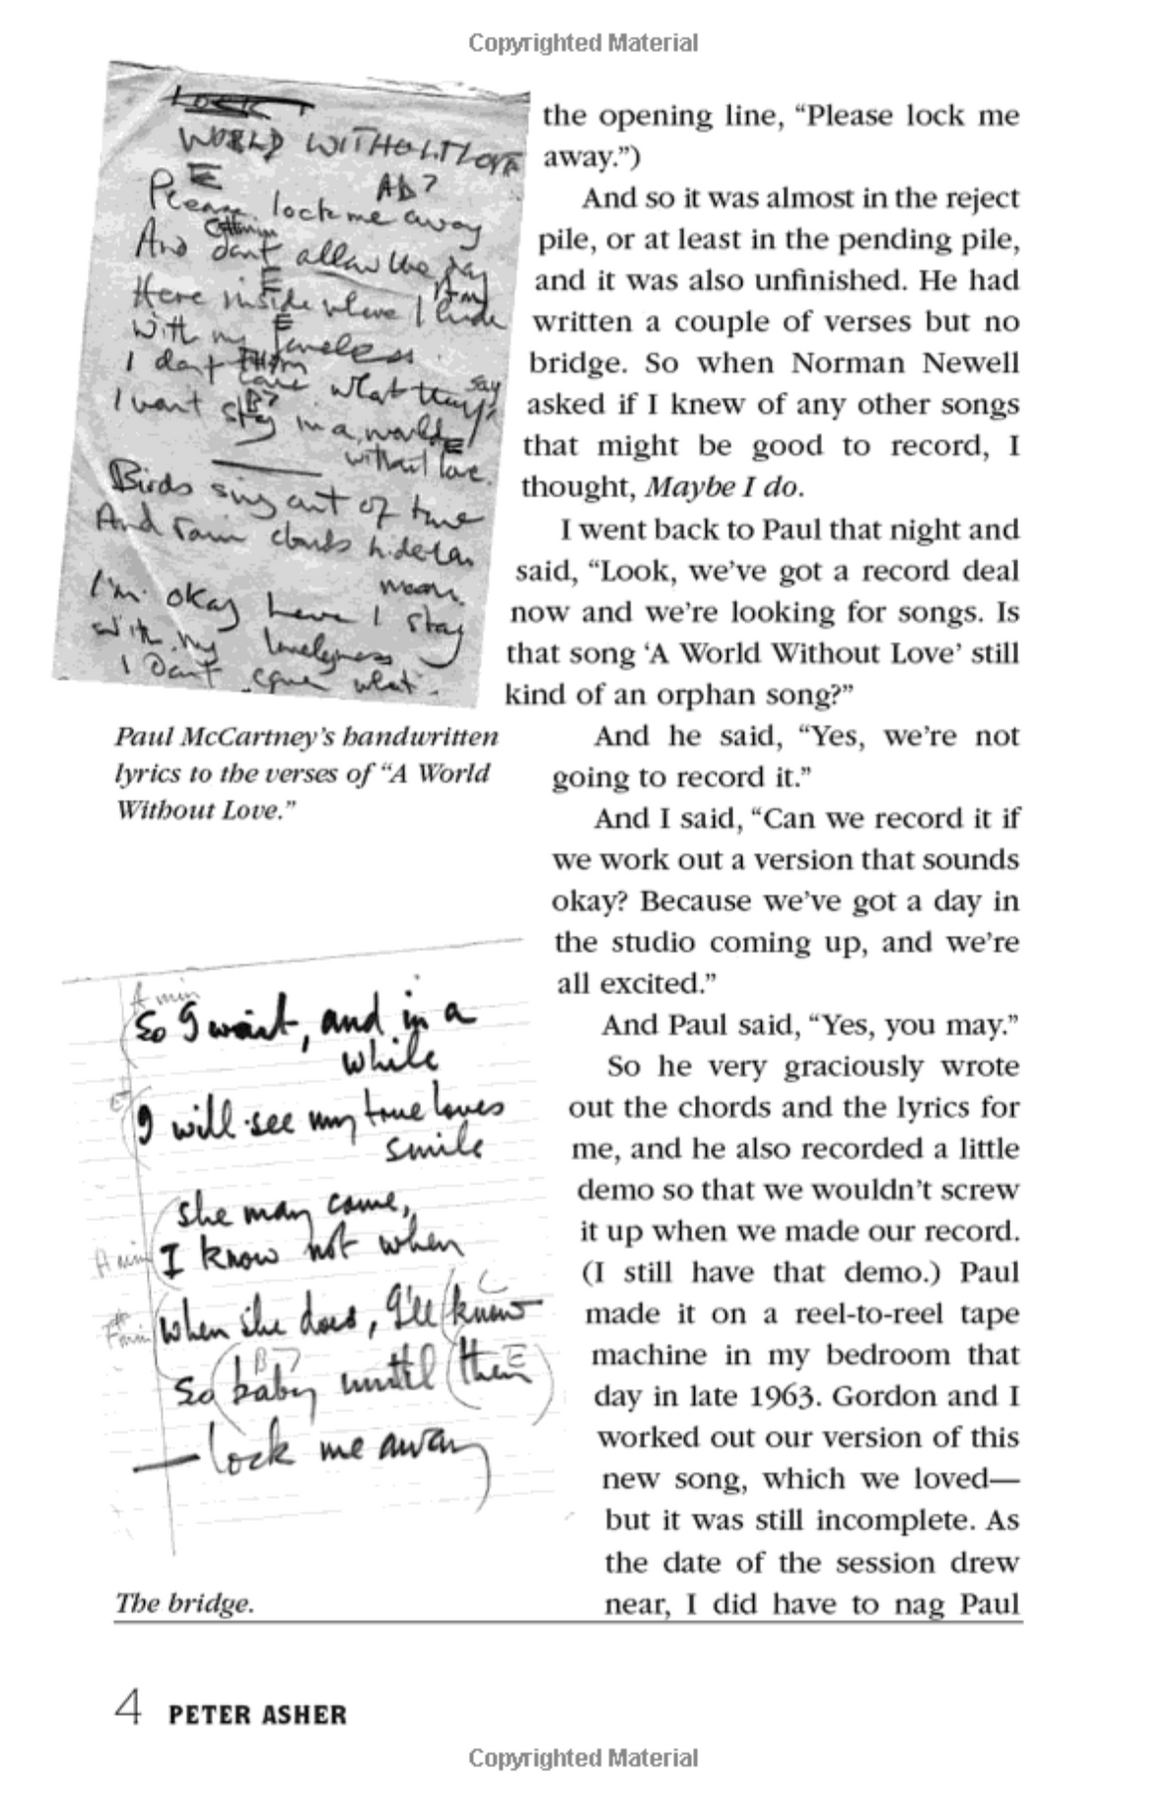 Copyrighted Material
WORLD WITHOUT LOVE
E
Ab7
Please lock me away
And don't allow the day
E
Here inside where I hide
E
With my loneliness
I don't care what they say
B7
I wont stay in a world
E
without love.
Birds sing out of tune
And rain clouds hide the
moon.
I'm okay here I stay
with my loneliness
I Don't care what
Paul McCartney's handwritten
lyrics to the verses of “A World
Without Love.”
A min
So I wait, and in a
while
I will see my true loves
smile
She may come,
A min I know not when
C
When she does, I'll know
B7 E
So baby until then
— lock me away
The bridge.
the opening line, “Please lock me
away.”)
And so it was almost in the reject
pile, or at least in the pending pile,
and it was also unfinished. He had
written a couple of verses but no
bridge. So when Norman Newell
asked if I knew of any other songs
that might be good to record, I
thought, Maybe I do.
I went back to Paul that night and
said, “Look, we've got a record deal
now and we're looking for songs. Is
that song ‘A World Without Love’ still
kind of an orphan song?”
And he said, “Yes, we're not
going to record it.”
And I said, “Can we record it if
we work out a version that sounds
okay? Because we've got a day in
the studio coming up, and we're
all excited.”
And Paul said, “Yes, you may.”
So he very graciously wrote
out the chords and the lyrics for
me, and he also recorded a little
demo so that we wouldn't screw
it up when we made our record.
(I still have that demo.) Paul
made it on a reel-to-reel tape
machine in my bedroom that
day in late 1963. Gordon and I
worked out our version of this
new song, which we loved—
but it was still incomplete. As
the date of the session drew
near, I did have to nag Paul
4 PETER ASHER
Copyrighted Material